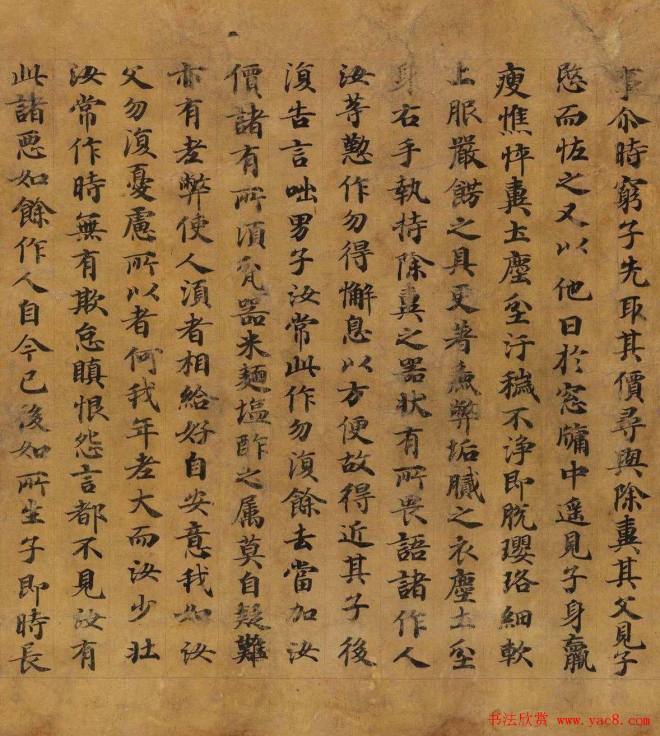 事尒時窮子先取其價尋與除糞其父見子
愍而恠之又以他日於窓牖中遙見子身羸
瘦憔悴糞土塵坌汙穢不淨即脫瓔珞細軟
上服嚴餝之具更著麁弊垢膩之衣塵土坌
身右手執持除糞之器狀有所畏語諸作人
汝等懃作勿得懈息以方便故得近其子後
復告言咄男子汝常此作勿復餘去當加汝
價諸有所須瓫器米麵塩酢之属莫自疑難
亦有老弊使人須者相給好自安意我如汝
父勿復憂慮所以者何我年老大而汝少壯
汝常作時無有欺怠瞋恨怨言都不見汝有
此諸惡如餘作人自今已後如所生子即時長
书法欣赏 www.yac8.com